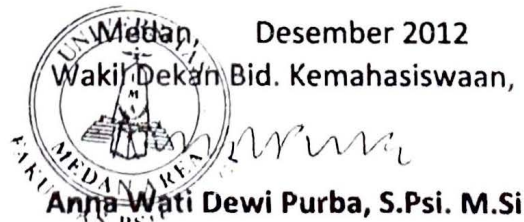 Medan, Desember 2012
Wakil Dekan Bid. Kemahasiswaan,
UNIVERSITAS
MEDAN AREA
Anna Wati Dewi Purba, S.Psi. M.Si